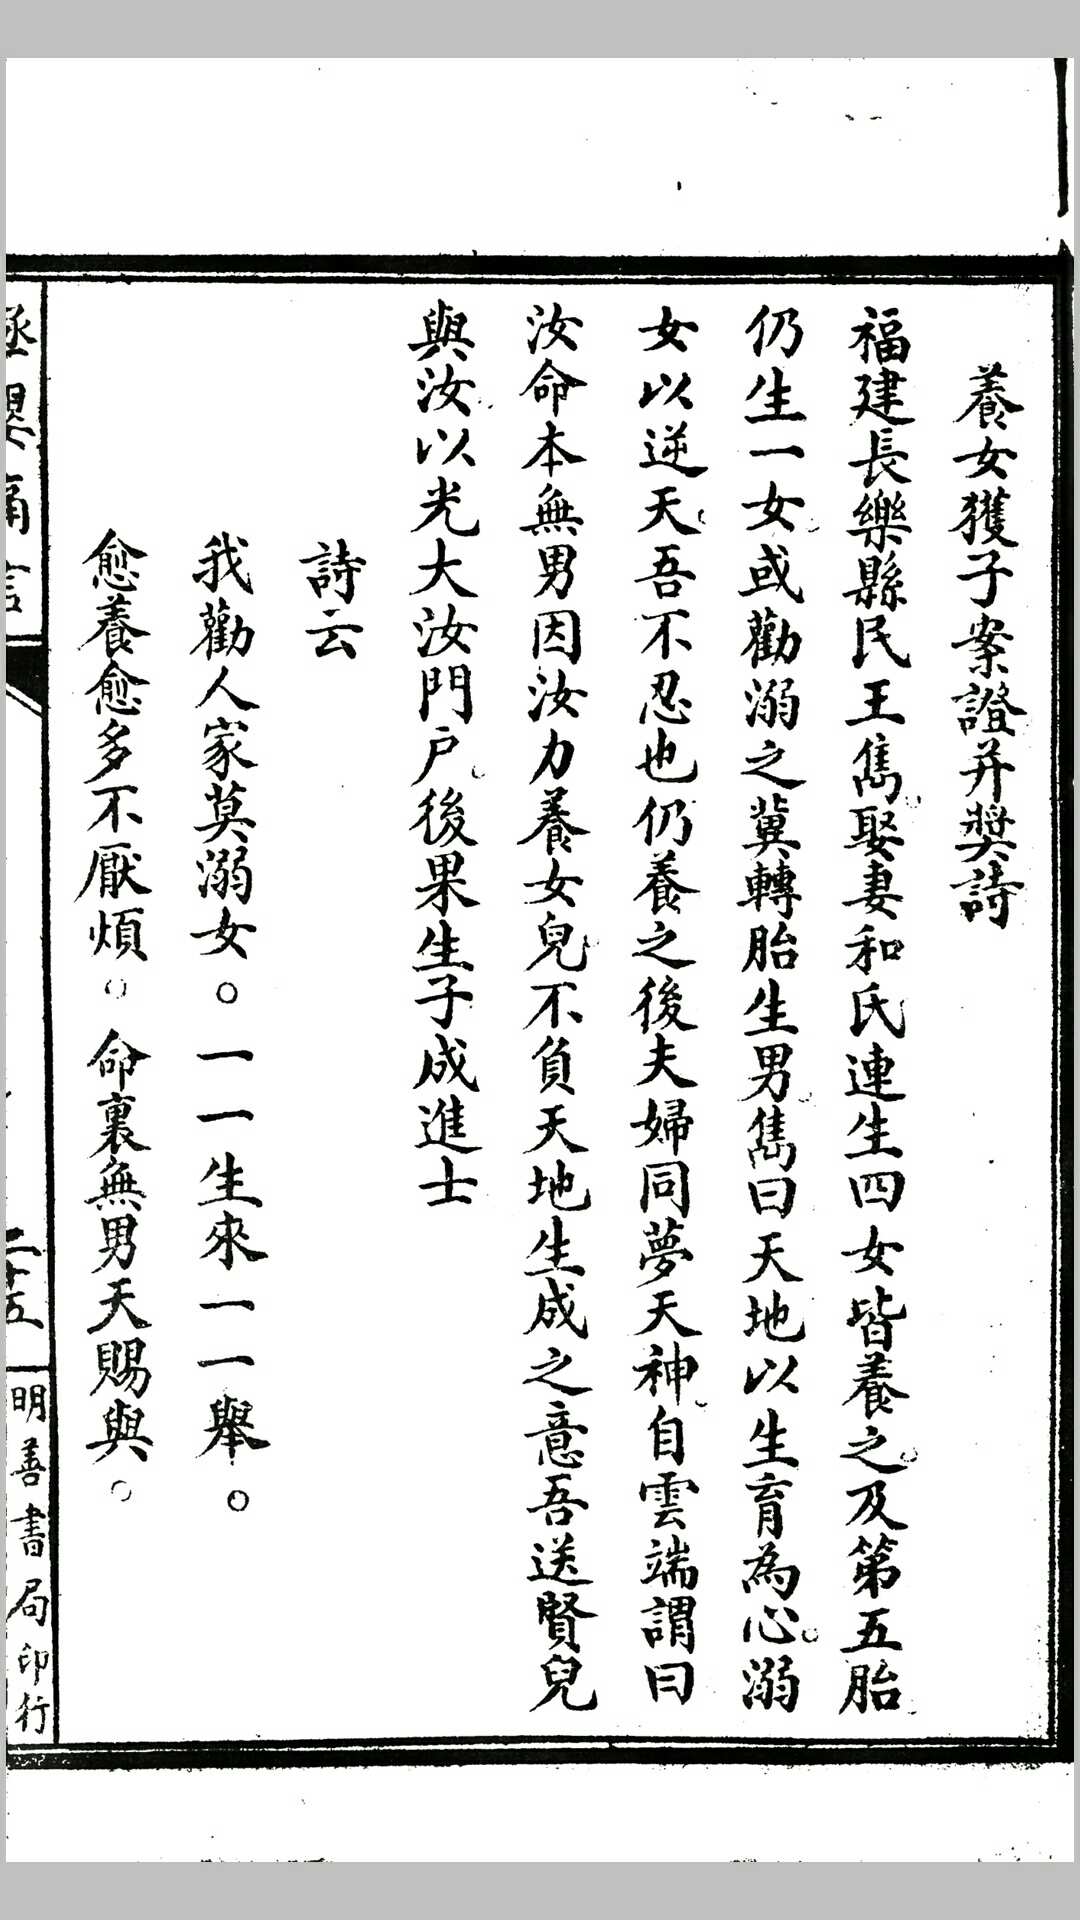 養女獲子案證并獎詩
福建長樂縣民王雋娶妻和氏連生四女皆養之。及第五胎
仍生一女。或勸溺之冀轉胎生男。雋曰天地以生育為心。溺
女以逆天。吾不忍也仍養之後夫婦同夢天神。自雲端謂曰
汝命本無男因汝力養女兒。不負天地生成之意吾送賢兒
與汝。以光大汝門户。後果生子成進士
詩云
我勸人家莫溺女。一一生來一一舉。
愈養愈多不厭煩。命裏無男天賜與。
拯嬰痛言
二十五
明善書局印行